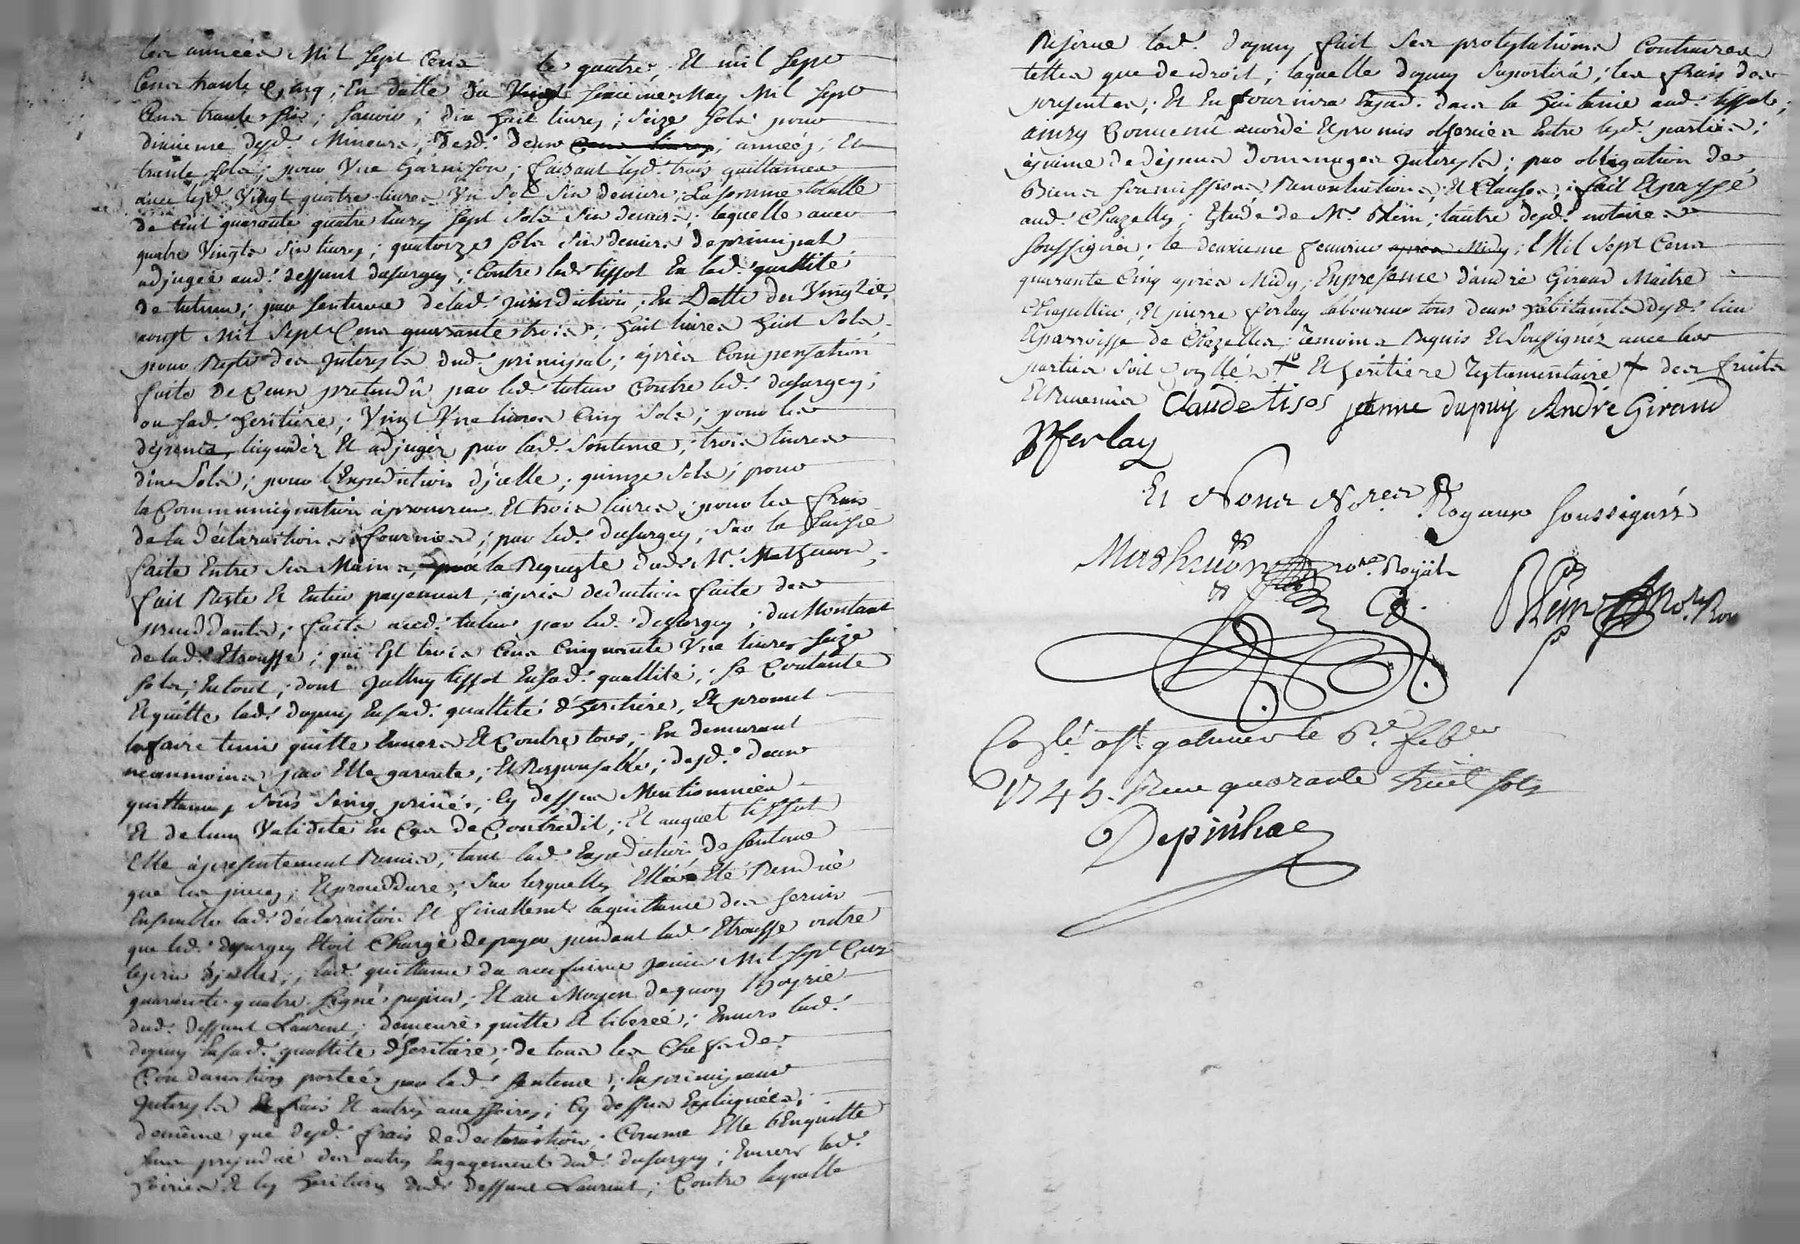 les années Mil Sept Cens le quatre, Et mil Sept
Cens trante Cinq, En datte du Seizieme May Mil Sept
Cens trante Six; Scavoir; dix huit livres; Seize Sols pour
dixieme desd. Mineurs; desd. deux années; Et
trante Sols; pour Une Garnison; faisant lesd. trois quittances
avec lesd. Vingt quatre livres Un Sol Six deniers; La Somme totalle
de Cent quarante quatre livres Sept Sols Six deniers; laquelle avec
quatre Vingts Six livres; quatorze Sols Six deniers de principal
adjugée aud. deffunt dufurgey; Contre led. tissot En lad. quallité
de tuteur; par Sentence de lad. jurisdiction; En Datte du Vingt
aoust Mil Sept Cens quarante trois; huit livres huit Sols
pour Reste des Interests dud. principal; après Compensation
faite De Ceux pretendû par led. tuteur Contre led. dufurgey;
ou sad. heritiere; Vingt Une livres Cinq Sols; pour les
dépens, liquidéz Et adjugéz par lad. Sentence; trois livres
dix Sols; pour l'Expedition d'jcelle; quinze Sols; pour
la Communiquation à procureur Et trois livres; pour les frais
de la déclaration fournie; par led. dufurgey; Sur la Saisie
faite Entre Ses Mains, la Requeste dud. Mr. Mathevon;
fait Reste Et Entier payement; après deduction faite des
precedants; faits aud. tuteur par led. dufurgey; du Montant
de lad. Etrousse; qui Est trois Cens Cinquante Une livres Seize
Sols; En tout; dont tissot En sad. quallité; Se Contante
Et quitte lad. dupuy En sad. quallité d'heritiere, Et promet
la faire tenir quitte Envers Et Contre tous, En demeurant
neanmoins par Elle garente; Et Responsable; desd. deux
quittances Sous Seing privés; Cy dessus Mentionnées
Et de leur Validité En Cas de Contredit; Et auquel tissot
Elle à presentement Remis; tant lad. Expedition de Sentence
que les pieces; Et procedure; Sur lesquelles Elle à Eté Rendüe
Ensemble lad. déclaration Et finallement la quittance des Servis
que led. dufurgey Etoit Chargé de payer pendant lad. Etrousse outre
le prix d'jcelle; lad. quittance du neufvieme Janvier Mil Sept Cens
quarante quatre Signé papier; Et au Moyen de quoy l'hoyrie
dud. deffunt Laurent; demeure quitte Et liberée; Envers lad.
dupuy En sad. quallité d'heritiere; de tous les Chefs de
Condanation portée par lad. Sentence; En principaux
Interests frais Et autres accessoires; Cy dessus Expliquées;
de même que desd. frais de declaration; Comme Elle
Sans prejudice des autres Engagements dud. dufurgey; Envers lad.
hoirie Et les heritiers dud. deffunt Laurent; Contre laquelle
Reserve lad. dupuy fait Ses protestations Contraires
telles que de droit; laquelle dupuy Suportera; les frais des
presentes; Et En fournira Expéd. dans la huitaine aud. tissot;
ainsy Convenû acordé Et promis observer Entre lesd. parties;
à peine de dépens domages Interests; par obligation de
Biens Soumissions Renontiations; Et Clauses; fait Et passé
aud. Chazelles; Etude de Mr. Blein; l'autre desd. notaires
Soussignés; le deuxieme fevrier après Midy; Mil Sept Cens
quarante Cinq après Midy; En presence d'andré Giraud Maitre
Chapellier; Et pierre ferlay laboureur tous deux habitants dud. lieu
Et parroisse de Chazelles; temoins Requis Et Soussignéz avec les
parties Soit Et heritiere Testamentaire des fruits
Et Revenus Claude tisos jeanne dupuy André Giraud
P ferlay
Et Nous Nores Royaux Soussignés
Mathevon nore. Royal
Blein Nore. Roy
Conlé. a St. galmier le 6e. feber
1745. Receu quarante huit sols
Depinhac